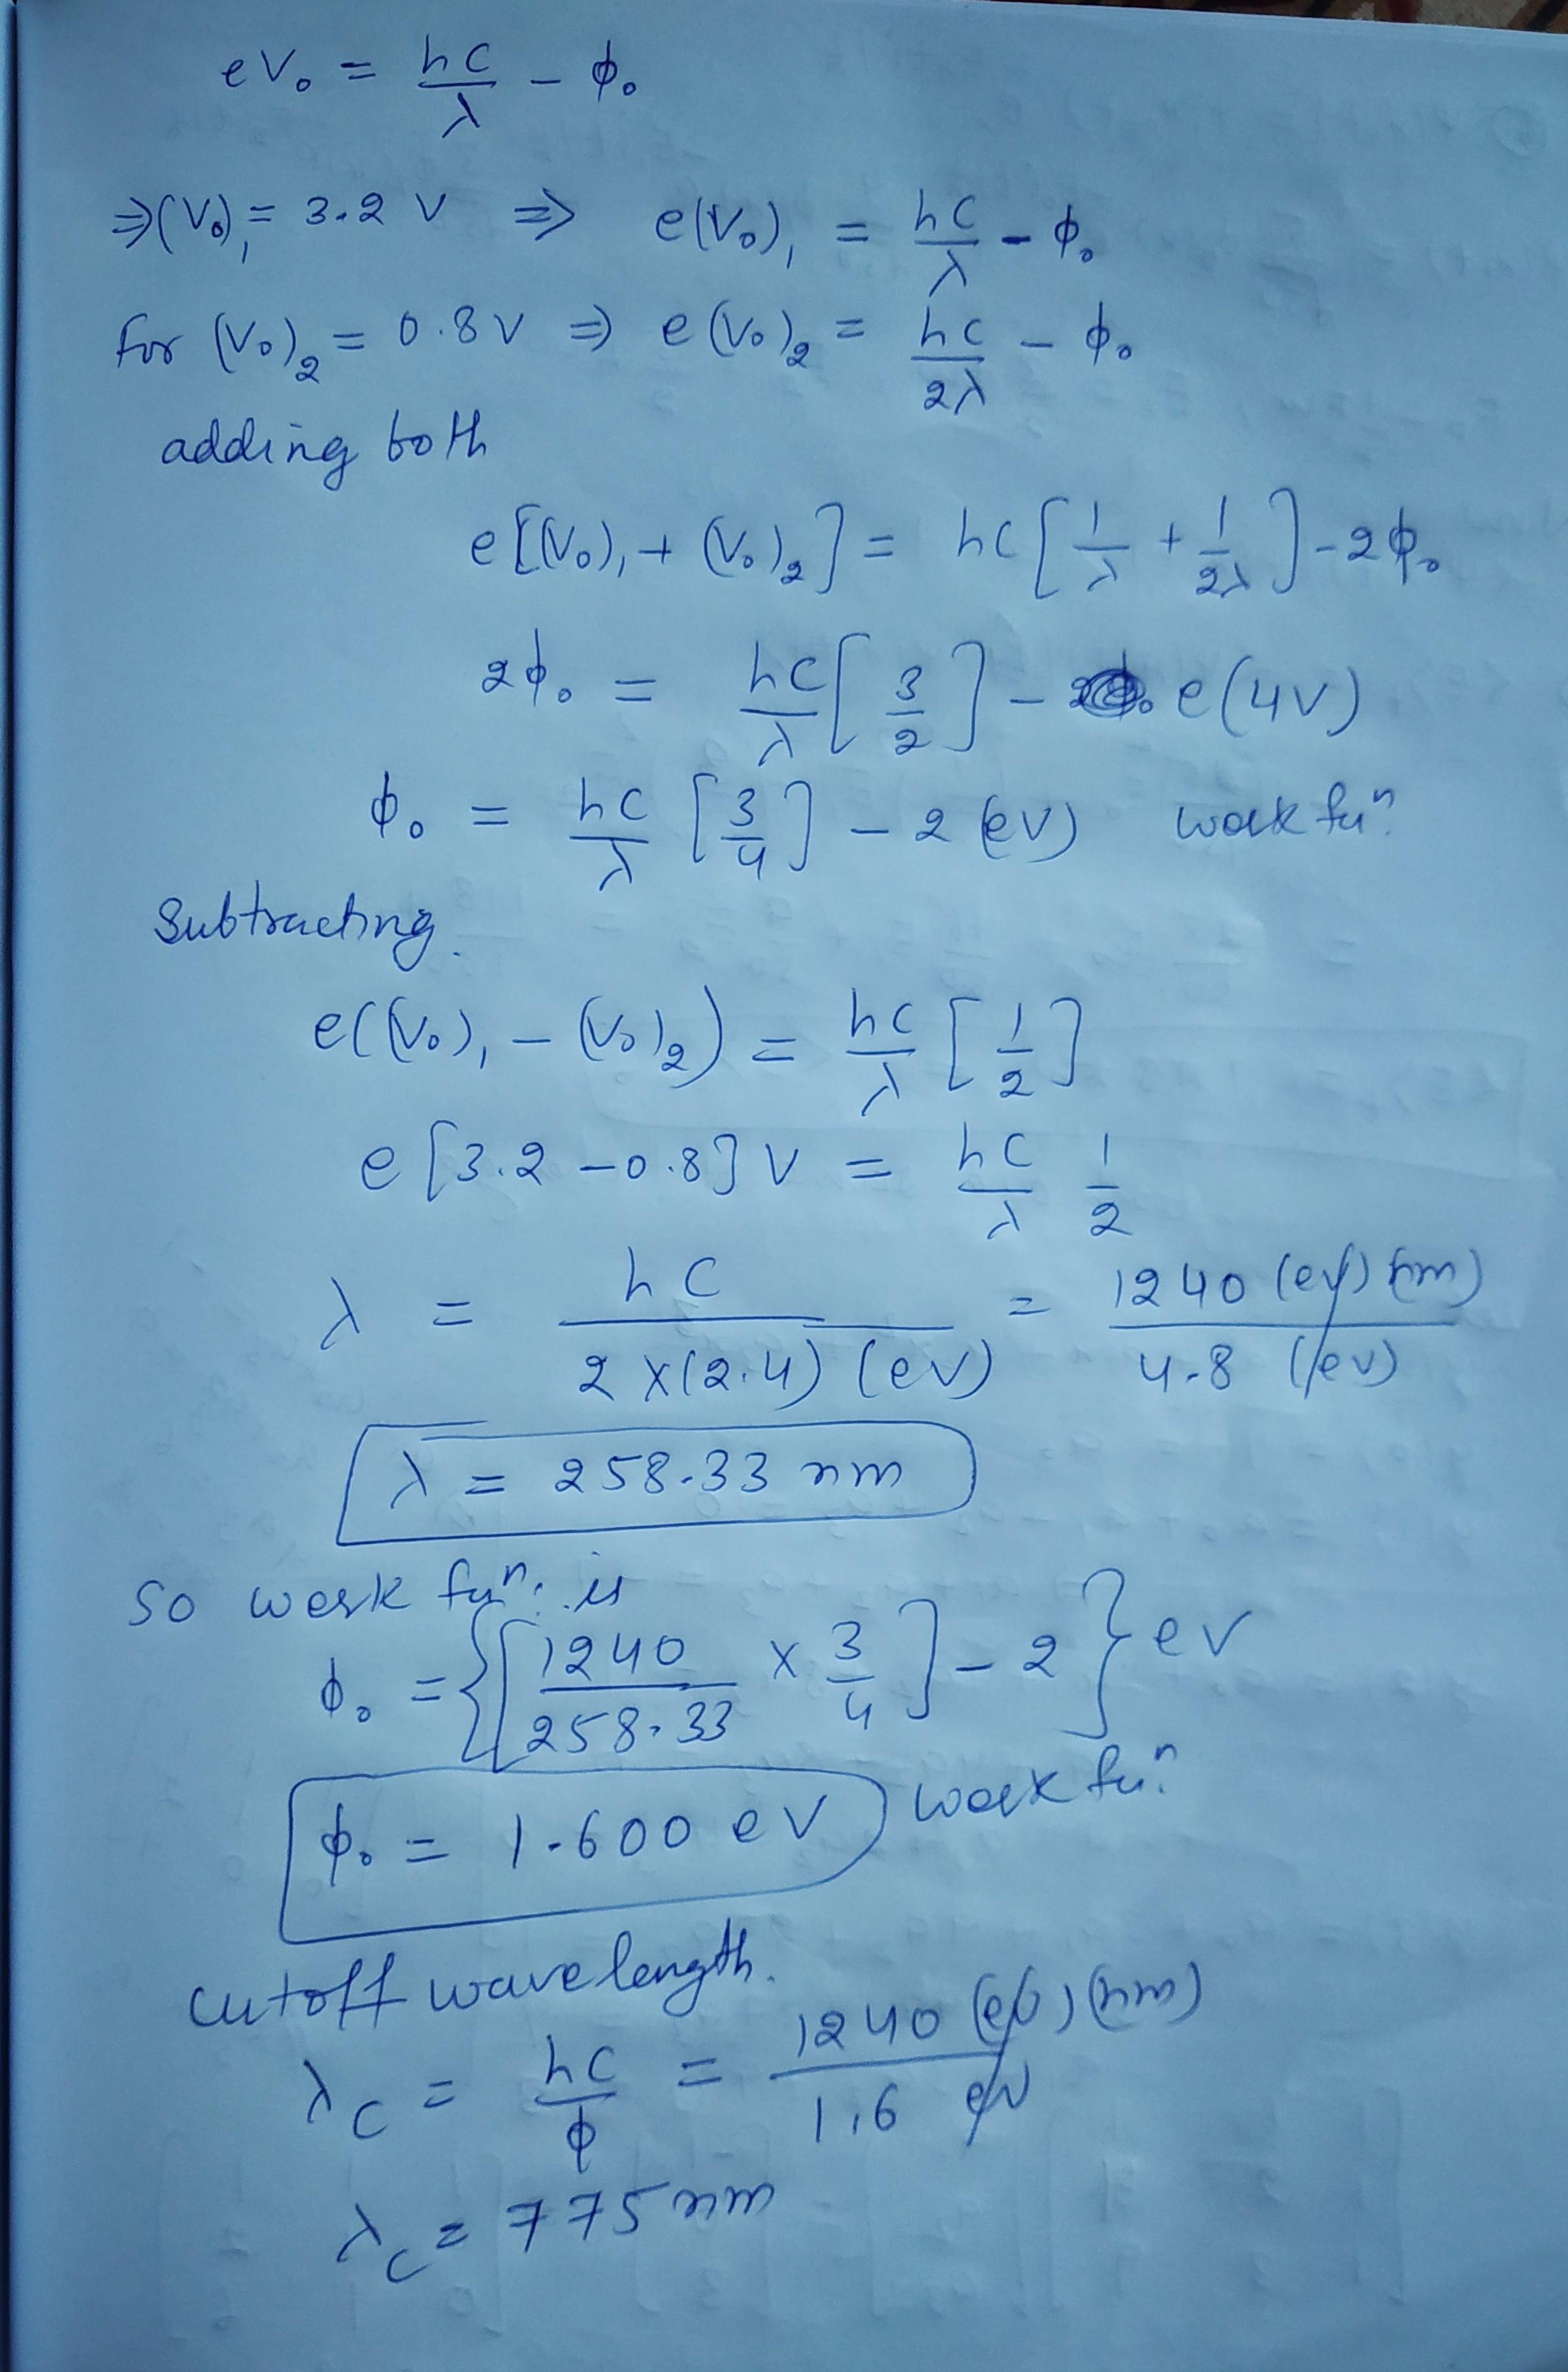 eV₀ = hc/λ - ϕ₀
⇒ (V₀)₁ = 3.2 V ⇒ e(V₀)₁ = hc/λ - ϕ₀
for (V₀)₂ = 0.8 V ⇒ e(V₀)₂ = hc/2λ - ϕ₀
adding both
e[(V₀)₁ + (V₀)₂] = hc[1/λ + 1/2λ] - 2ϕ₀
2ϕ₀ = hc/λ [3/2] - e(4V)
ϕ₀ = hc/λ [3/4] - 2(eV) work fuⁿ.
Subtracting.
e((V₀)₁ - (V₀)₂) = hc/λ [1/2]
e[3.2 - 0.8] V = hc/λ 1/2
λ = hc / 2×(2.4) (eV) = 1240 (eV)(nm) / 4.8 (eV)
λ = 258.33 nm
So work fuⁿ. is
ϕ₀ = {[1240/258.33 × 3/4] - 2} eV
ϕ₀ = 1.600 eV work fuⁿ.
cutoff wavelength.
λc = hc/ϕ = 1240 (eV)(nm) / 1.6 eV
λc = 775 nm